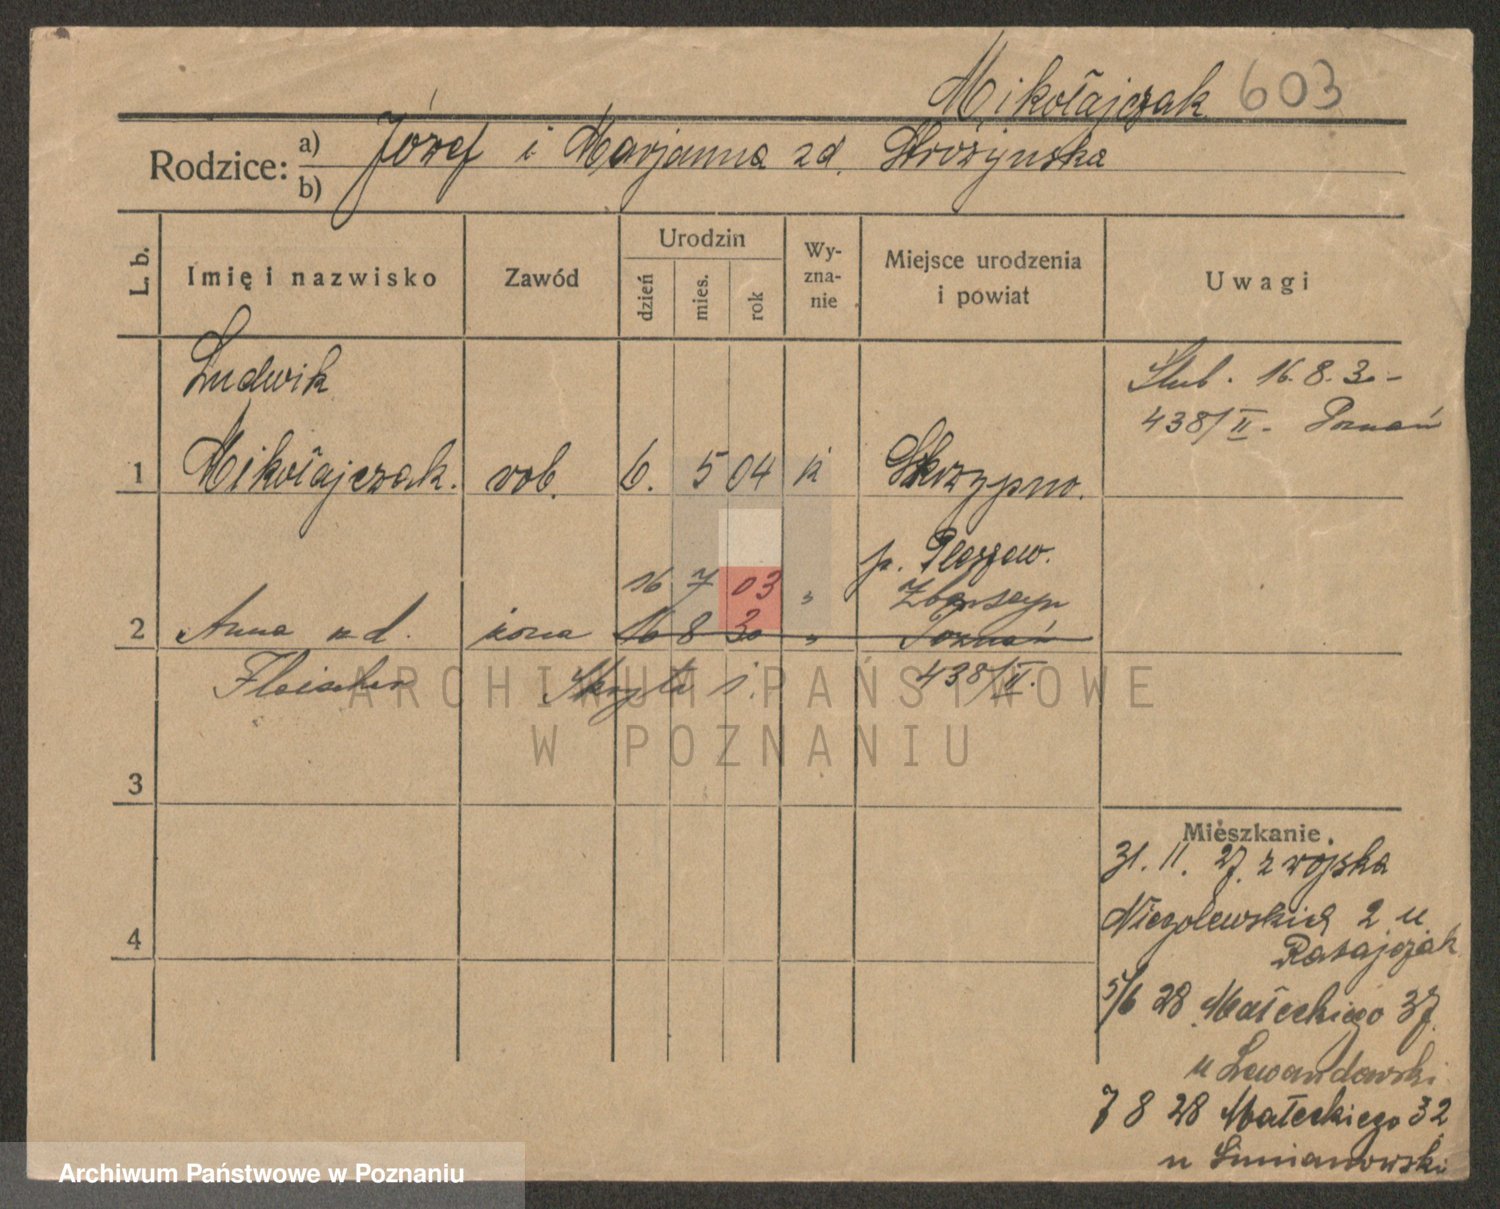 Mikołajczak 603
Rodzice: a) Józef i Marjanna zd. Stróżyńska
b)
L. b. Imię i nazwisko Zawód Urodzin dzień mies. rok Wy-zna-nie Miejsce urodzenia i powiat Uwagi
Ludwik
Ślub. 16. 8. 30 -
438/II - Poznań
1 Mikołajczak. rob. 6. 5 04 k Skrzypno.
p. Pleszew.
16 7 03 " Zbąszyń
2 Anna z d. żona 16 8 30 " Poznań
Fleischer 438/II.
ARCHIWUM PAŃSTWOWE
W POZNANIU
3
Mieszkanie.
31. 11. 27. z wojska
4 Niegolewskich 2 u
Ratajczak
5/6 28 Małeckiego 37.
u Lewandowski
7 8 28 Małeckiego 32
u Simianowski
Archiwum Państwowe w Poznaniu